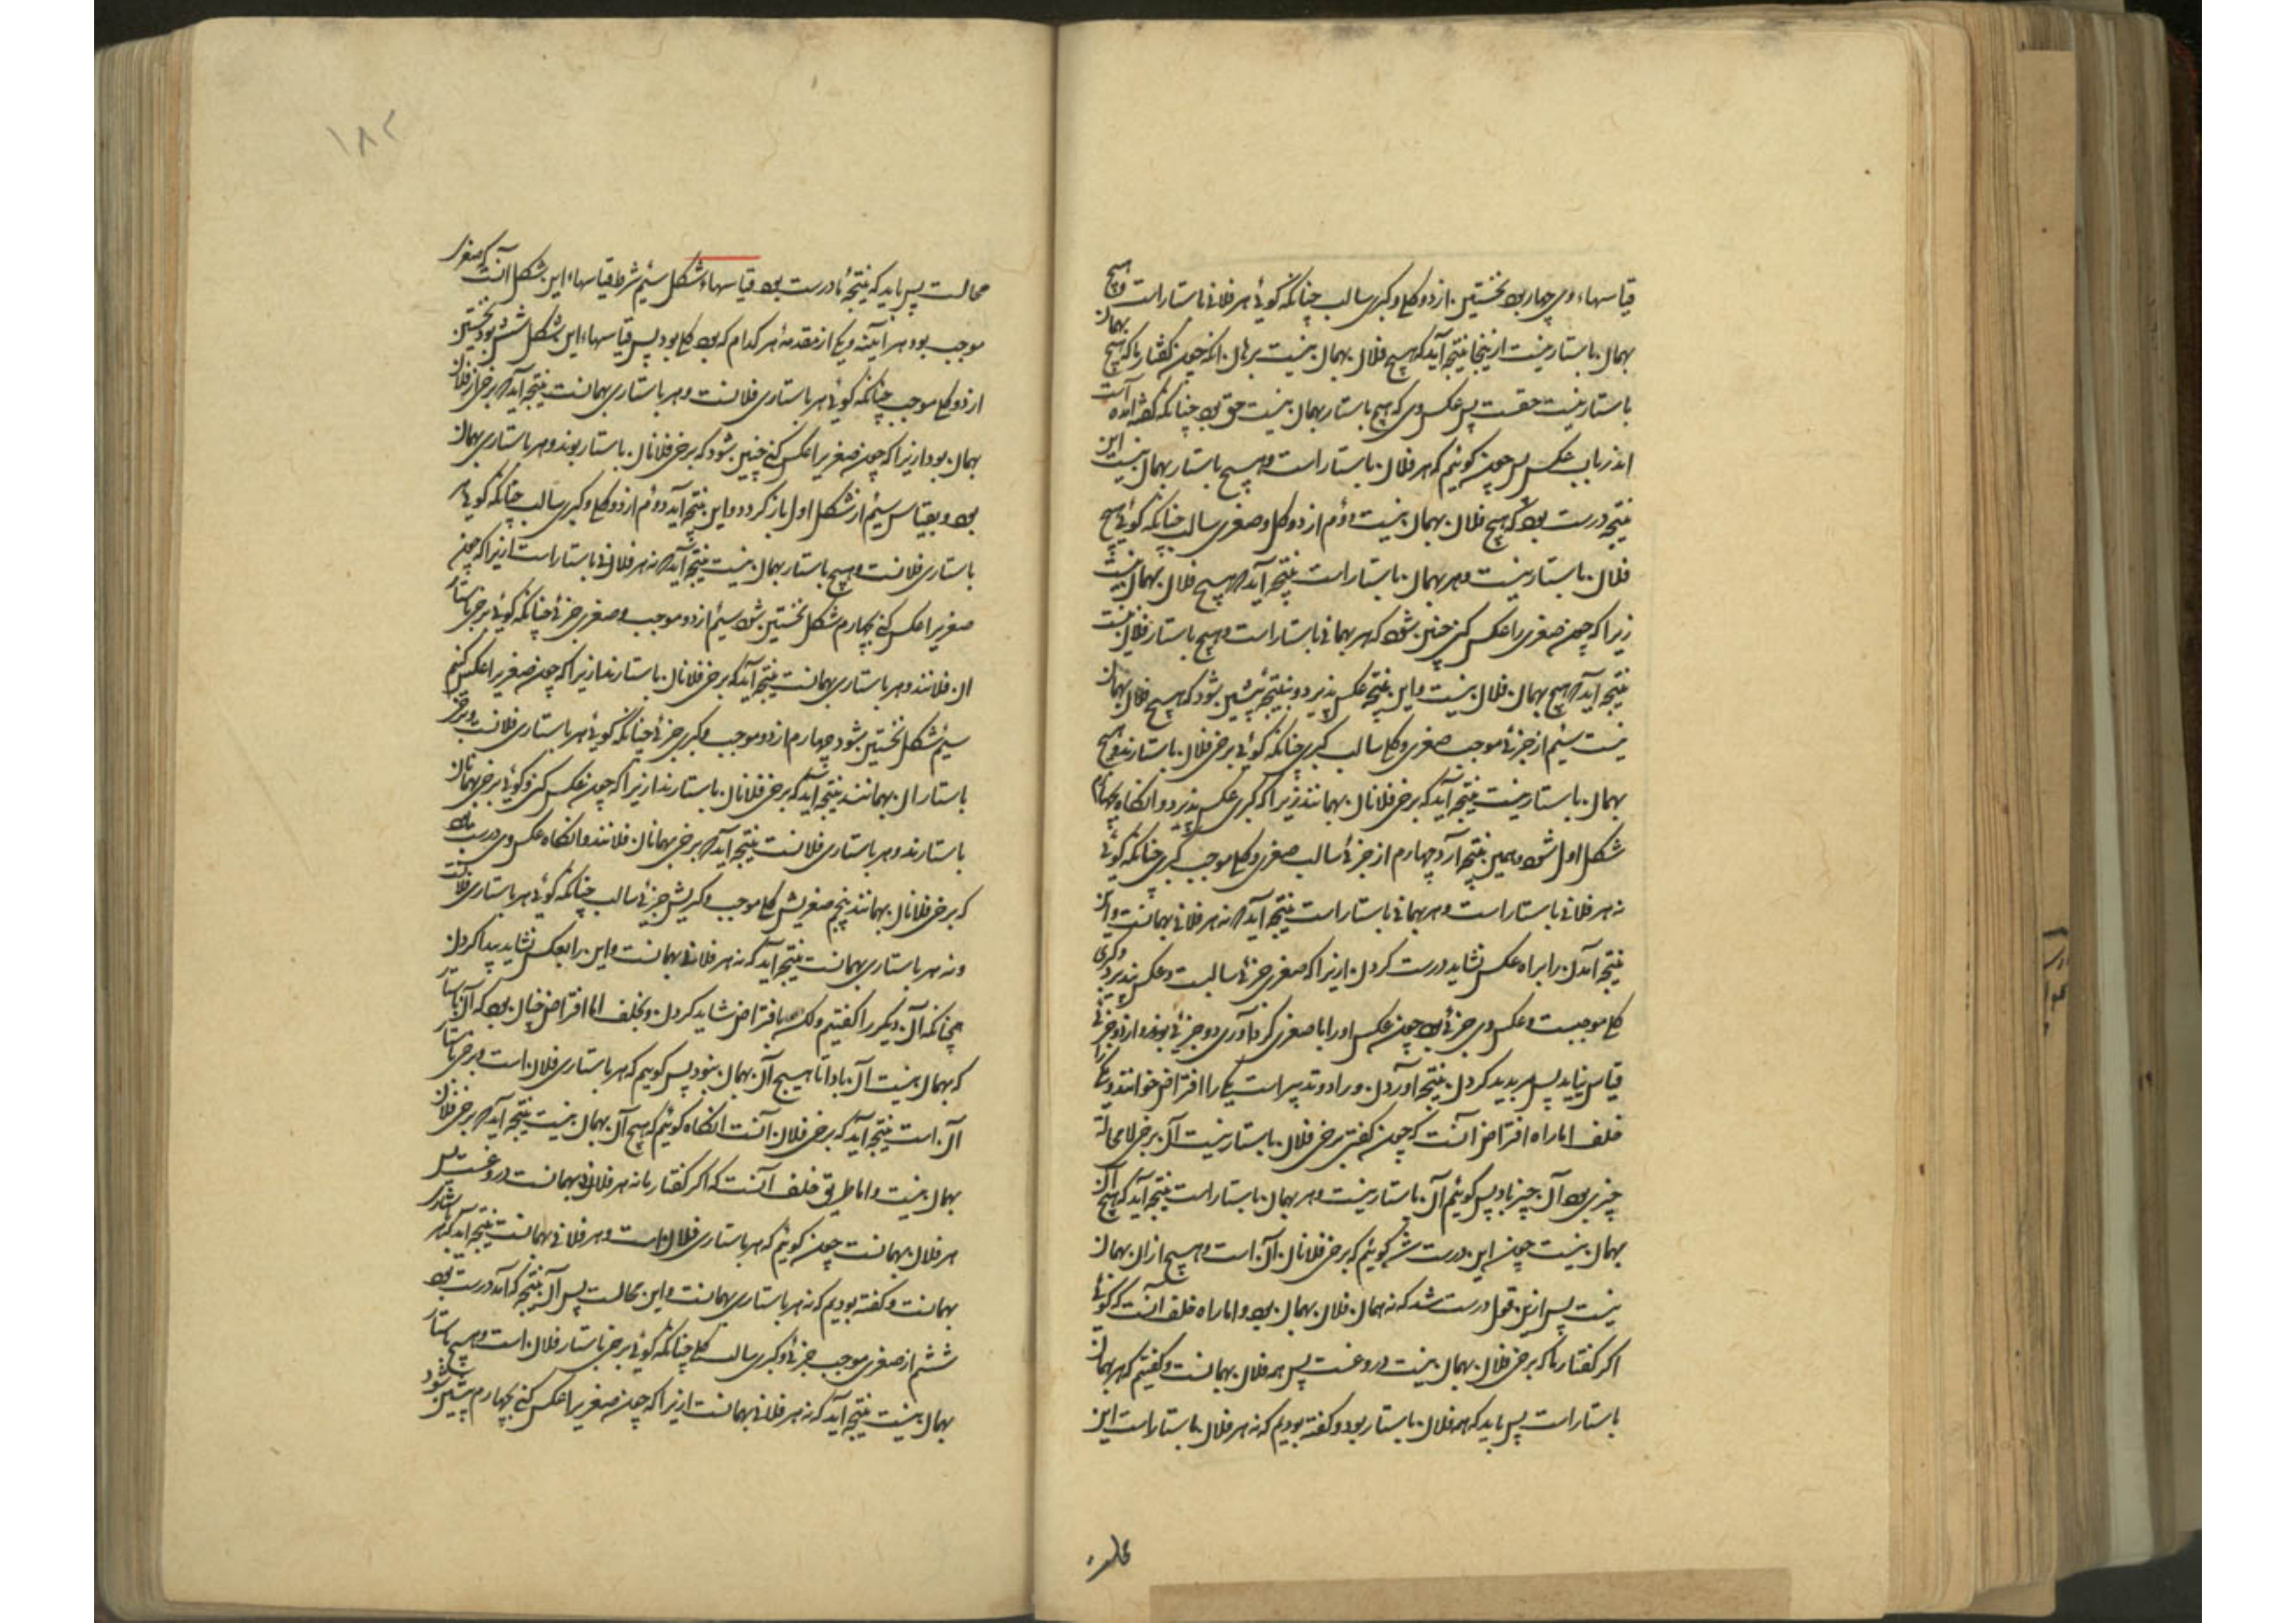 قیاسهاء وی چهار بود نخستین از دو کلی و کبری سالب چنانکه کوئی هر فلانی باستار است و هیچ
بهمان باستار نیست ازینجا نتیجه آید که هیچ فلان بهمان نیست برهان آنکه چون کفتار ما که هیچ بهمان
باستار نیست حقست پس عکس وی که هیچ باستار بهمان نیست حق بود چنانکه کفته آمده است
اندر باب عکس پس چون کوئیم که هر فلان باستار است و هیچ باستار بهمان نیست این
نتیجه درست بود که هیچ فلان بهمان نیست دوم از دو کلی و صغری سالب چنانکه کوئی هیچ
فلان باستار نیست و هر بهمان باستار است نتیجه آید که هیچ فلان بهمان نیست
زیرا که چون صغری را عکس کنی چنین شود که هر بهمانی باستار است و هیچ باستار فلان نیست
نتیجه آید که هیچ بهمان فلان نیست و این نتیجه عکس پذیرد و نتیجه پیشین شود که هیچ فلان بهمان
نیست سئیم از جزئی موجب صغری و کلی سالب کبری چنانکه کوئی برخی فلان باستارند و هیچ
بهمان باستار نیست نتیجه آید که برخی فلانان بهمانند زیرا که کبری عکس پذیرد و آنکاه بچهارم
شکل اول شود و همین نتیجه آرد چهارم از جزئی سالب صغری و کلی موجب کبری چنانکه کوئی
نه هر فلانی باستار است و هر بهمانی باستار است نتیجه آید که نه هر فلانی بهمانست و این
نتیجه آمدن را براه عکس نشاید درست کردن ازیرا که صغری جزئی سالبست و عکس نپذیرد و کبری
کلی موجبست و عکس وی جزئی بود چون عکس او را با صغری کرد آوری دو جزئی بوند و از دو جزئی
قیاس نیاید پس پدید کردن نتیجه آوردن ورا دو تدبیر است یکی را افتراض خوانند و یکی را
خلف اما راه افتراض آنست که چون کفتی برخی فلان باستار نیست آن برخی لامحاله
چیزی بود آن چیز باد پس کوئیم آن باستار نیست و هر بهمان باستار است نتیجه آید که هیچ آن
بهمان نیست چون این درست شد کوئیم که برخی فلانان آن است و هیچ از آن بهمان
نیست پس ازین قول درست شد که نه همان فلان بهمان بود و اما راه خلف آنست که کوئی
اکر کفتار ما که برخی فلان بهمان نیست دروغست پس همه فلان بهمانست و کفتیم که هر بهمان
باستار است پس باید که همه فلان باستار بود و کفته بودیم که نه هر فلان باستار است این
۱۸۲
محالست پس باید که نتیجهٔ ما درست بود قیاسهاء شکل سئیم شرط قیاسهاء این شکل آنست که صغری
موجب بود هر آینه و یکی از مقدمه هر کدام که بود کلی بود پس قیاسهاء این شکل شش بود نخستین
از دو کلی موجب چنانکه کوئی هر باستاری فلانست و هر باستاری بهمانست نتیجه آید که برخی از فلان
بهمان بود ازیرا که چون صغری را عکس کنی چنین شود که برخی فلانان باستار بوند و هر باستاری بهمان
بود و بقیاس سئیم از شکل اول باز کردد و این نتیجه آید دوم از دو کلی و کبری سالب چنانکه کوئی هر
باستاری فلانست و هیچ باستار بهمان نیست نتیجه آید که نه هر فلانی باستار است ازیرا که چون
صغری را عکس کنی چهارم شکل نخستین شود سئیم از دو موجب و صغری جزئی چنانکه کوئی برخی باستار
ان فلانند و هر باستاری بهمانست نتیجه آید که برخی فلانان باستارند ازیرا که چون صغری را عکس کنیم
سیم شکل نخستین شود چهارم از دو موجب و کبری جزئی چنانکه کوئی هر باستاری فلانست و برخی
باستاران بهمانند نتیجه آید که برخی فلانان باستارند ازیرا که چون عکس کنی و کوئی برخی بهمانان
باستارند و هر باستاری فلانست نتیجه آید که برخی بهمانان فلانند و آنکاه عکس وی درست بود
که برخی فلانان بهمانند پنجم صغریش کلی موجب و کبریش جزئی سالب چنانکه کوئی هر باستاری فلانست
و نه هر باستاری بهمانست نتیجه آید که نه هر فلانی بهمانست و این را بعکس نشاید پیدا کردن
همچنانکه آن دیکر را کفتیم ولکن بافتراض شاید کردن و بخلف اما افتراض چنان بود که آن باستار
که بهمان نیست آن باد تا هیچ آن بهمان نبود پس کوئیم که هر باستاری فلان است و برخی باستار
آن است نتیجه آید که برخی فلان آنست آنکاه کوئیم که هیچ آن بهمان نیست نتیجه آید که برخی فلان
بهمان نیست و اما طریق خلف آنست که اکر کفتار ما نه هر فلانی بهمانست دروغست پس
هر فلان بهمانست چون کوئیم که هر باستاری فلان است و هر فلانی بهمانست نتیجه آید که هر باستاری
بهمانست و کفته بودیم که نه هر باستاری بهمانست و این محالست پس آن نتیجه که آمد درست بود
ششم از صغری موجب جزئی و کبری سالب کلی چنانکه کوئی برخی باستار فلان است و هیچ باستار
بهمان نیست نتیجه آید که نه هر فلانی بهمانست ازیرا که چون صغری را عکس کنی بچهارم پیشین شود